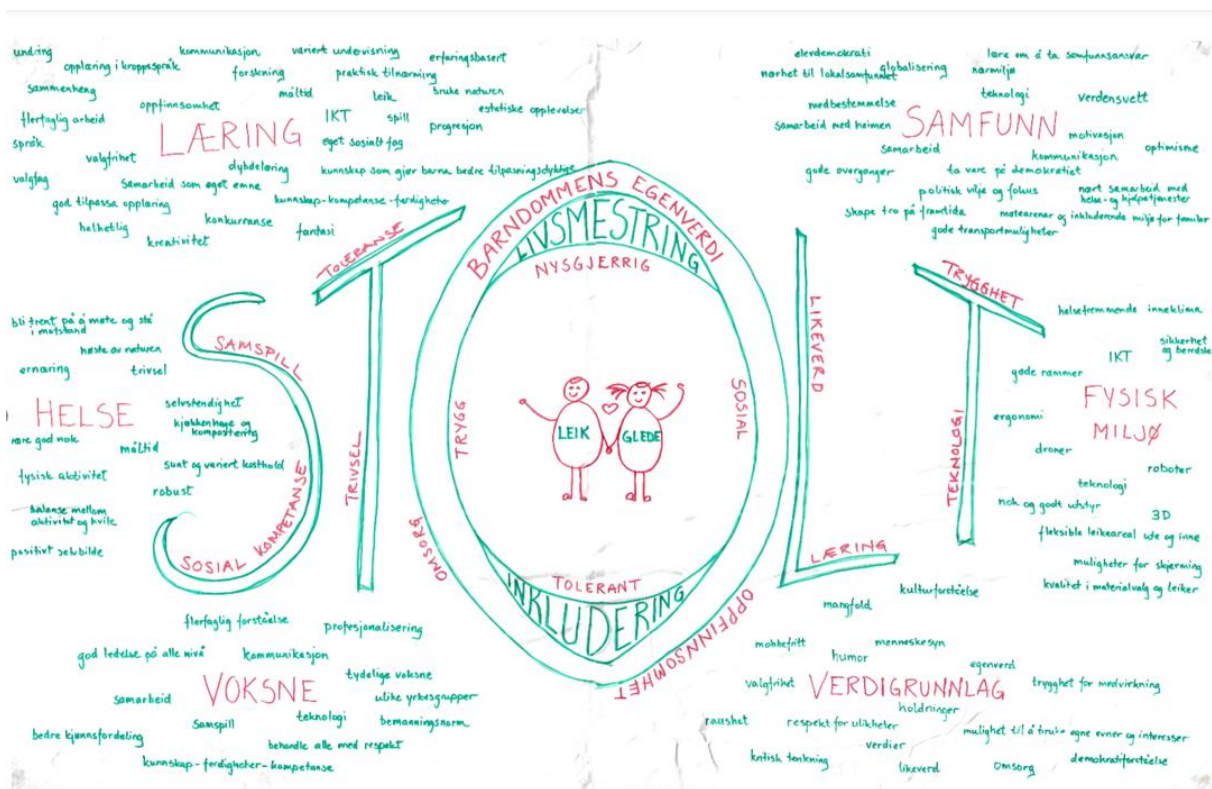 undring
kommunikasjon
variert undervisning
erfaringsbasert
opplæring i kroppsspråk
forskning
praktisk tilnærming
sammenheng
måltid
leik
bruke naturen
oppfinnsomhet
IKT
spill
estetiske opplevelser
flerfaglig arbeid
LÆRING
progresjon
språk
eget sosialt fag
valgfrihet
dybdelæring
kunnskap som gjør barna bedre tilpasningsdyktige
valgfag
samarbeid som eget emne
god tilpassa opplæring
kunnskap-kompetanse-ferdigheter
helhetlig
konkurranse
fantasi
kreativitet
elevdemokrati
lære om å ta samfunnsansvar
nærhet til lokalsamfunnet
globalisering
nærmiljø
teknologi
verdensvett
medbestemmelse
samarbeid med heimen
SAMFUNN
motivasjon
samarbeid
kommunikasjon
optimisme
gode overganger
ta vare på demokratiet
politisk vilje og fokus
nært samarbeid med
helse- og hjelpetjenester
skape tro på framtida
møtearenaer og inkluderende miljø for familier
gode transportmuligheter
SAMSPILL
SOSIAL KOMPETANSE
TOLERANSE
TRIVSEL
BARNDOMMENS EGENVERDI
LIVSMESTRING
NYSGJERRIG
TRYGG
SOSIAL
LEIK
GLEDE
TOLERANT
INKLUDERING
OMSORG
OPPFINNSOMHET
LIKEVERD
LÆRING
TRYGGHET
TEKNOLOGI
STOLT
bli trent på å møte og stå
i motstand
høste av naturen
ernæring
trivsel
HELSE
selvstendighet
kjøkkenhage og
kompostering
være god nok
måltid
sunt og variert kosthold
fysisk aktivitet
robust
balanse mellom
aktivitet og hvile
positivt selvbilde
helsefremmende inneklima
sikkerhet
og beredskap
IKT
gode rammer
FYSISK
MILJØ
ergonomi
droner
roboter
teknologi
nok og godt utstyr
3D
fleksible leikeareal ute og inne
muligheter for skjerming
kvalitet i materialvalg og leiker
flerfaglig forståelse
profesjonalisering
god ledelse på alle nivå
kommunikasjon
tydelige voksne
samarbeid
VOKSNE
ulike yrkesgrupper
samspill
teknologi
bemanningsnorm
bedre kjønnsfordeling
behandle alle med respekt
kunnskap-ferdigheter-kompetanse
kulturforståelse
mangfold
mobbefritt
menneskesyn
humor
egenverd
valgfrihet
VERDIGRUNNLAG
trygghet for medvirkning
holdninger
raushet
respekt for ulikheter
mulighet til å bruke egne evner og interesser
verdier
kritisk tenkning
likeverd
omsorg
demokratiforståelse